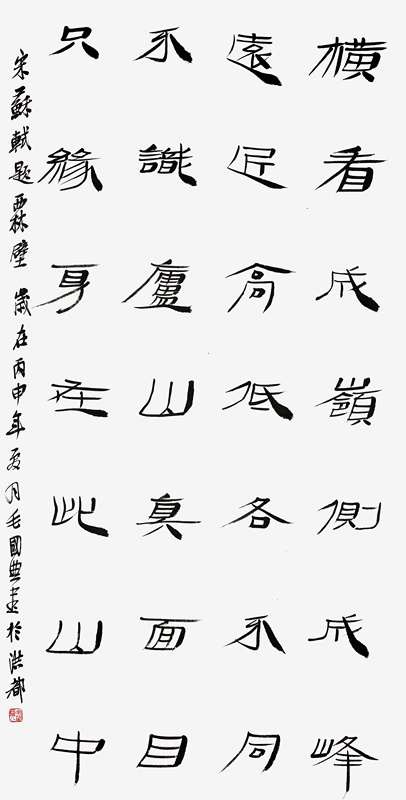 橫看成嶺側成峰
遠近高低各不同
不識廬山真面目
只緣身在此山中
宋蘇軾題西林壁 歲在丙申年夏月毛國典書於洪都